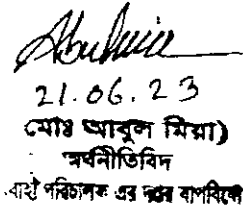 21.06.23
মোঃ আবুল মিয়া)
অর্থনীতিবিদ
পরিচালক এর দপ্তর বাপবিবো